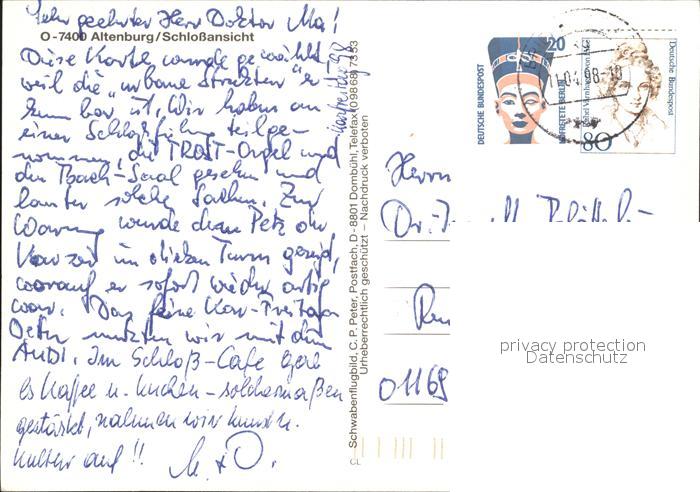 Sehr geehrter Herr Doktor Ma!
O-7400 Altenburg/Schloßansicht
Diese Karte wurde gewählt
weil die „urbane Struktur" er-
kennbar ist. Wir haben an
einer Schloßführung teilge-
nommen, die TROST-Orgel und
den Bach-Saal gesehen und
lauter solche Sachen. Zur
Warnung wurde dem Petz der
Karzer im dicken Turm gezeigt,
worauf er sofort wieder artig
war. Das feine Kar-Freitags
Wetter nutzten wir mit dem
AUDI. Im Schloß-Cafe gab
es Kaffee u. Kuchen - solchermaßen
gestärkt, nahmen wir Kunst u.
Kultur auf!! M. + O.
Karfreitag 98
Schwabenflugbild, C. P. Peter, Postfach, D-8801 Dombühl, Telefax (09868) 7353
Urheberrechtlich geschützt – Nachdruck verboten
CL
DEUTSCHE BUNDESPOST
20
Deutsche Bundespost
80
11.04.98
Herrn
Dr.
01169
privacy protection
Datenschutz